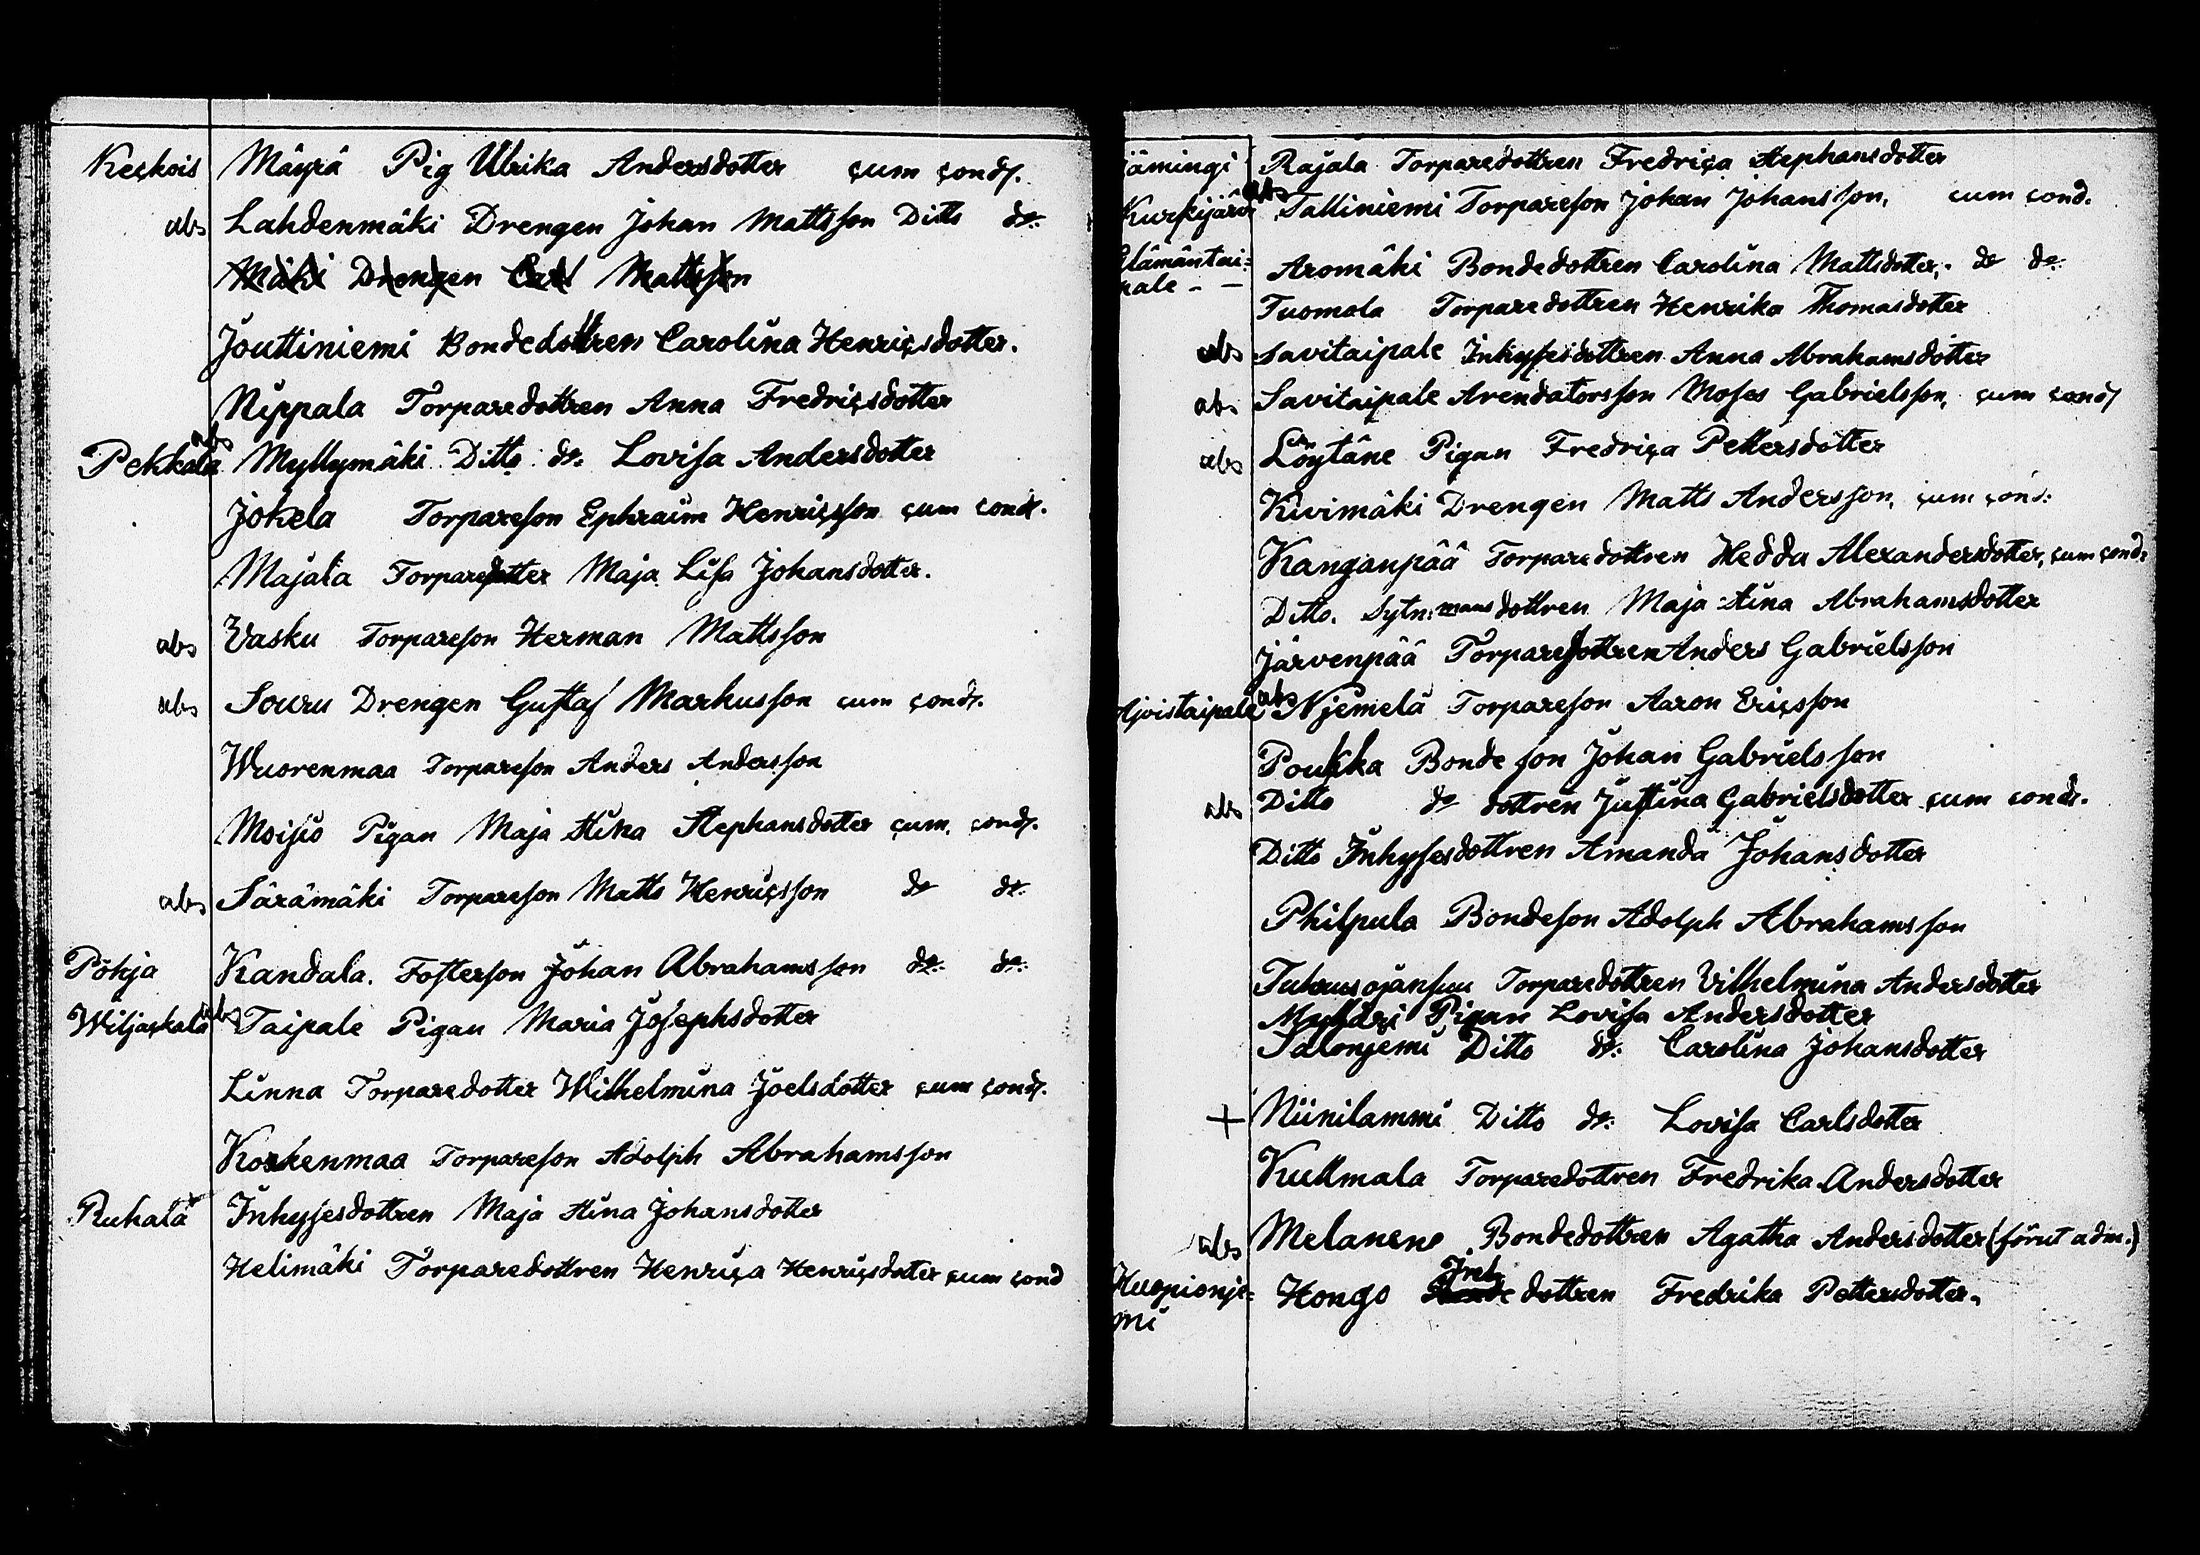 Keckois Mäyrä Pig Ulrika Andersdotter cum cond.
abs Lahdenmäki Drengen Johan Mattsson Ditto do:
Mäki Drengen Carl Mattsson
Jouttiniemi Bondedottren Carolina Henricsdotter.
Nippala Torparedottren Anna Fredricsdotter
Pekkala abs Myllymäki Ditto do: Lovisa Andersdotter
Jokela Torpareson Ephraim Henricsson cum cond.
Majala Torparedotter Maja Lisa Johansdotter.
abs Vasku Torpareson Herman Mattsson
abs Souru Drengen Gustaf Markusson cum cond.
Wuorenmaa Torpareson Anders Andersson
Moisio Pigan Maja Stina Stephansdotter cum cond.
abs Särämäki Torpareson Matts Henricsson do do:
Pohja Kandala. Fosterson Johan Abrahamsson do: do:
Wiljackala abs Taipale Pigan Maria Josephsdotter
Linna Torparedotter Wilhelmina Joelsdotter cum cond.
Koskenmaa Torpareson Adolph Abrahamsson
Ruhala Inhysesdottren Maja Stina Johansdotter
Helimäki Torparedottren Henrica Henricsdotter cum cond
Jämingi Rajala Torparedottren Fredrica Stephansdotter
Kurkijärvi abs Talliniemi Torpareson Johan Johansson, cum cond.
Elämäntai=
pale - - Aromäki Bondedottren Carolina Mattsdotter, do do:
Tuomola Torparedottren Henrika Thomasdotter
abs Savitaipale Inhysesdottren Anna Abrahamsdotter
abs Savitaipale Arendatorsson Moses Gabrielsson, cum cond
abs Löytäne Pigan Fredrica Pettersdotter
Kivimäki Drengen Matts Andersson, cum cond:
Kanganpää Torparedottren Hedda Alexandersdotter, cum cond:
Ditto. Sytn:mansdottren Maja Stina Abrahamsdotter
Järvenpää Torparesottren Anders Gabrielsson
Ajoistaipale abs Njemelä Torpareson Aaron Ericsson
Poukka Bondeson Johan Gabrielsson
abs Ditto do dottren Justina Gabrielsdotter cum cond.
Ditto Inhysesdottren Amanda Johansdotter
Philpula Bondeson Adolph Abrahamsson
Torparedottren Vilhelmina Andersdotter
Pigan Lovisa Andersdotter
Salonjemi Ditto do: Carolina Johansdotter
+ Niinilammi Ditto do: Lovisa Carlsdotter
Kullmala Torparedottren Fredrika Andersdotter
abs Melanen Bondedottren Agatha Andersdotter (förut adm.)
Kuopionje=
mi Hongo dottren Fredrika Pettersdotter.